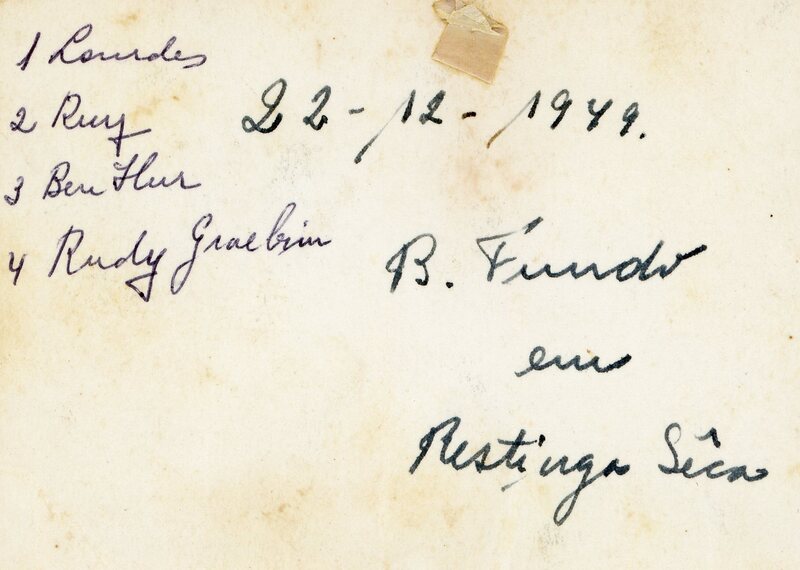 1 Lourdes
2 Ruy
3 Ben Hur
4 Rudy Graebim
22-12-1949.
B. Fundo
em
Restinga Sêca